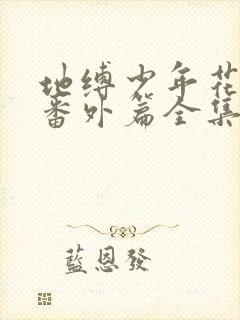 地缚少年花
番外篇全集
藍恩發